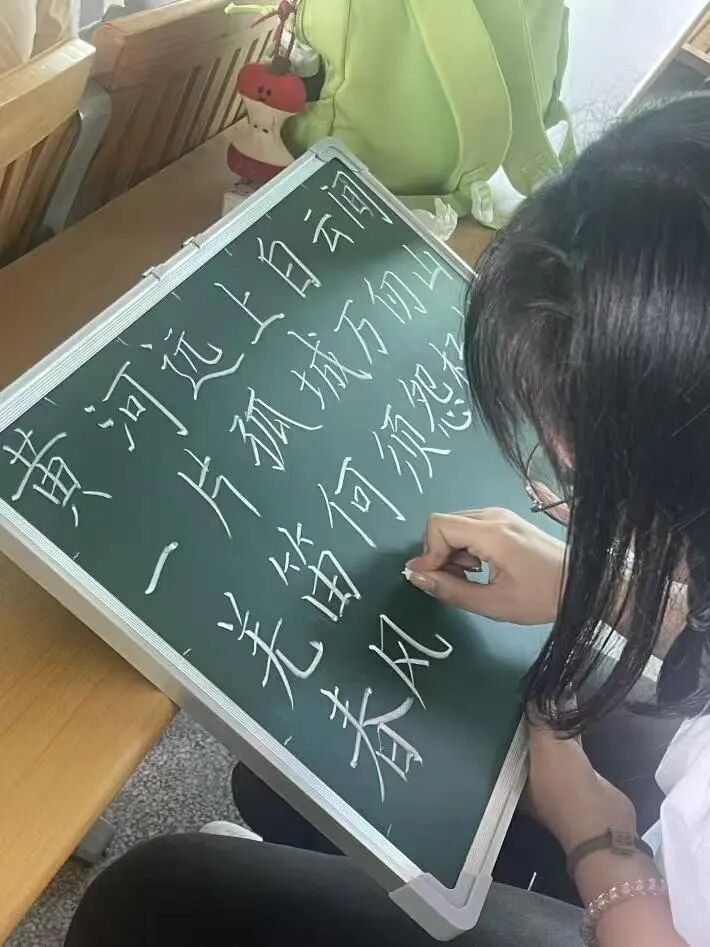 黄河远上白云间
一片孤城万仞山
羌笛何须怨
春风